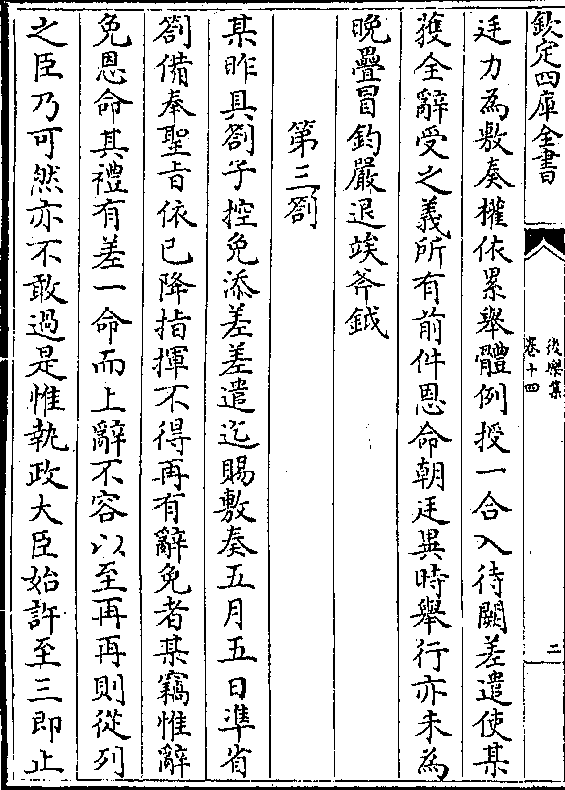 欽定四庫全書
後樂集
卷十四
二
廷力為敷奏權依累舉體例授一合入待闕差遣使某
獲全辭受之義所有前件恩命朝廷異時舉行亦未為
晚疊冒鈞嚴退竢斧鉞
第三劄
某昨具劄子控免添差差遣迄賜敷奏五月五日準省
劄備奉聖旨依已降指揮不得再有辭免者某竊惟辭
免恩命其禮有差一命而上辭不容以至再再則從列
之臣乃可然亦不敢過是惟執政大臣始許至三即止